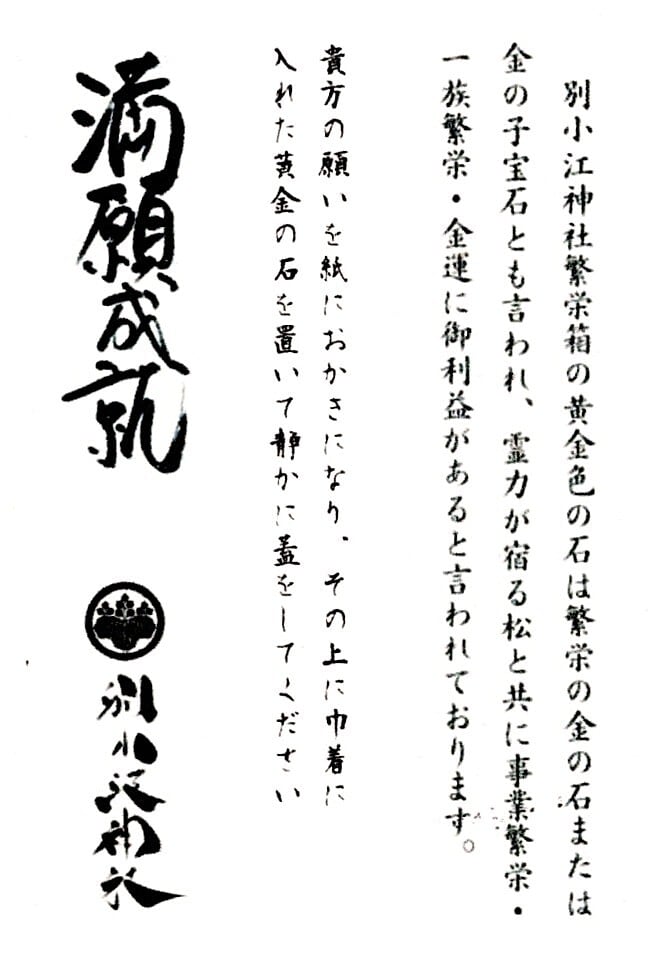 別小江神社繁栄箱の黄金色の石は繁栄の金の石または
金の子宝石とも言われ、霊力が宿る松と共に事業繁栄・
一族繁栄・金運に御利益があると言われております。
貴方の願いを紙におかきになり、その上に巾着に
入れた黄金の石を置いて静かに蓋をしてください
満願成就
別小江神社